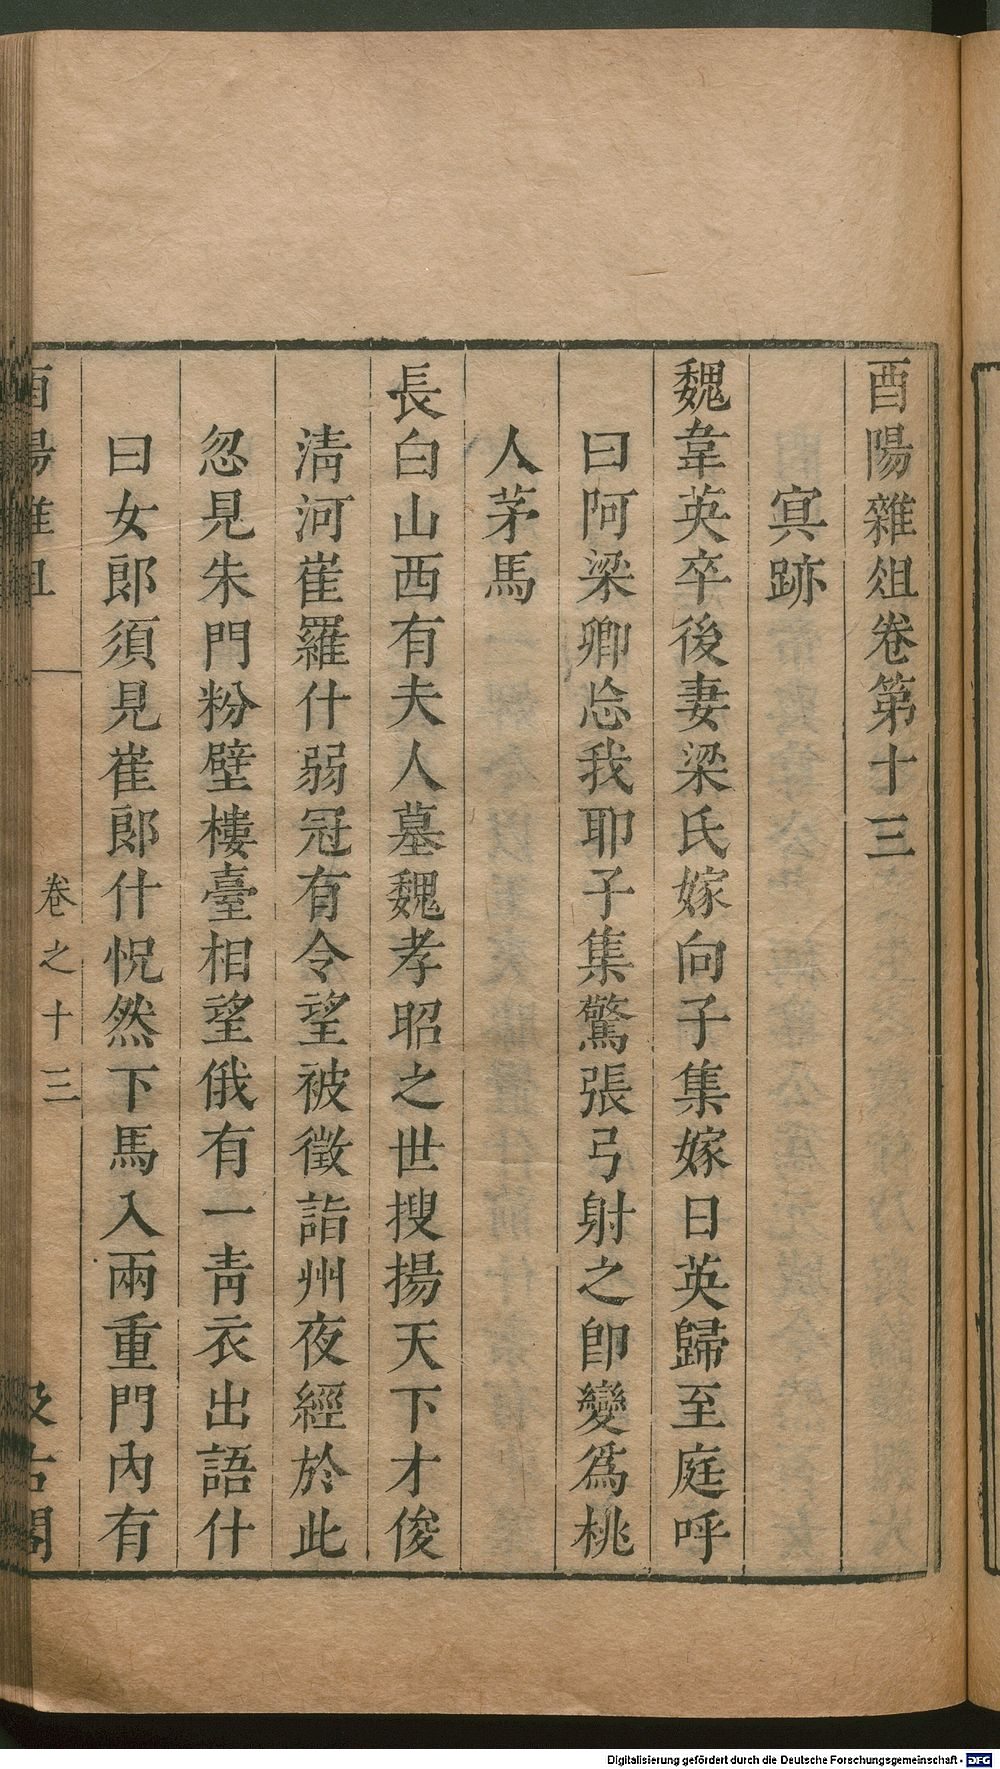 酉陽雜俎卷第十三
冥跡
魏韋英卒後妻梁氏嫁向子集嫁日英歸至庭呼
曰阿梁卿忘我耶子集驚張弓射之卽變爲桃
人茅馬
長白山西有夫人墓魏孝昭之世搜揚天下才俊
淸河崔羅什弱冠有令望被徵詣州夜經於此
忽見朱門粉壁樓臺相望俄有一靑衣出語什
曰女郎須見崔郎什怳然下馬入兩重門內有
酉陽雜俎
卷之十三
汲古閣
Digitalisierung gefördert durch die Deutsche Forschungsgemeinschaft - DFG